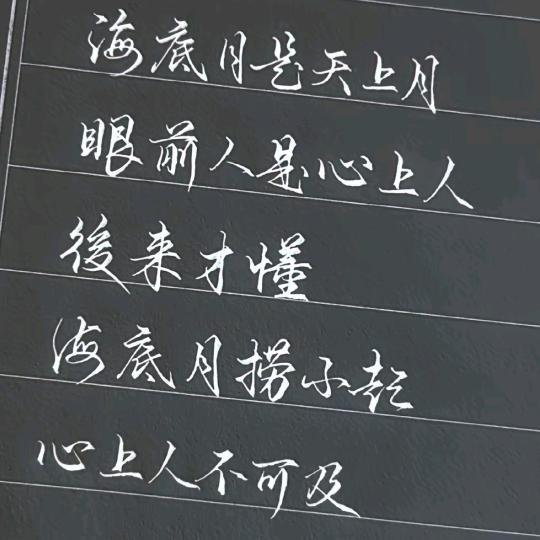 海底月是天上月
眼前人是心上人
後来才懂
海底月捞不起
心上人不可及